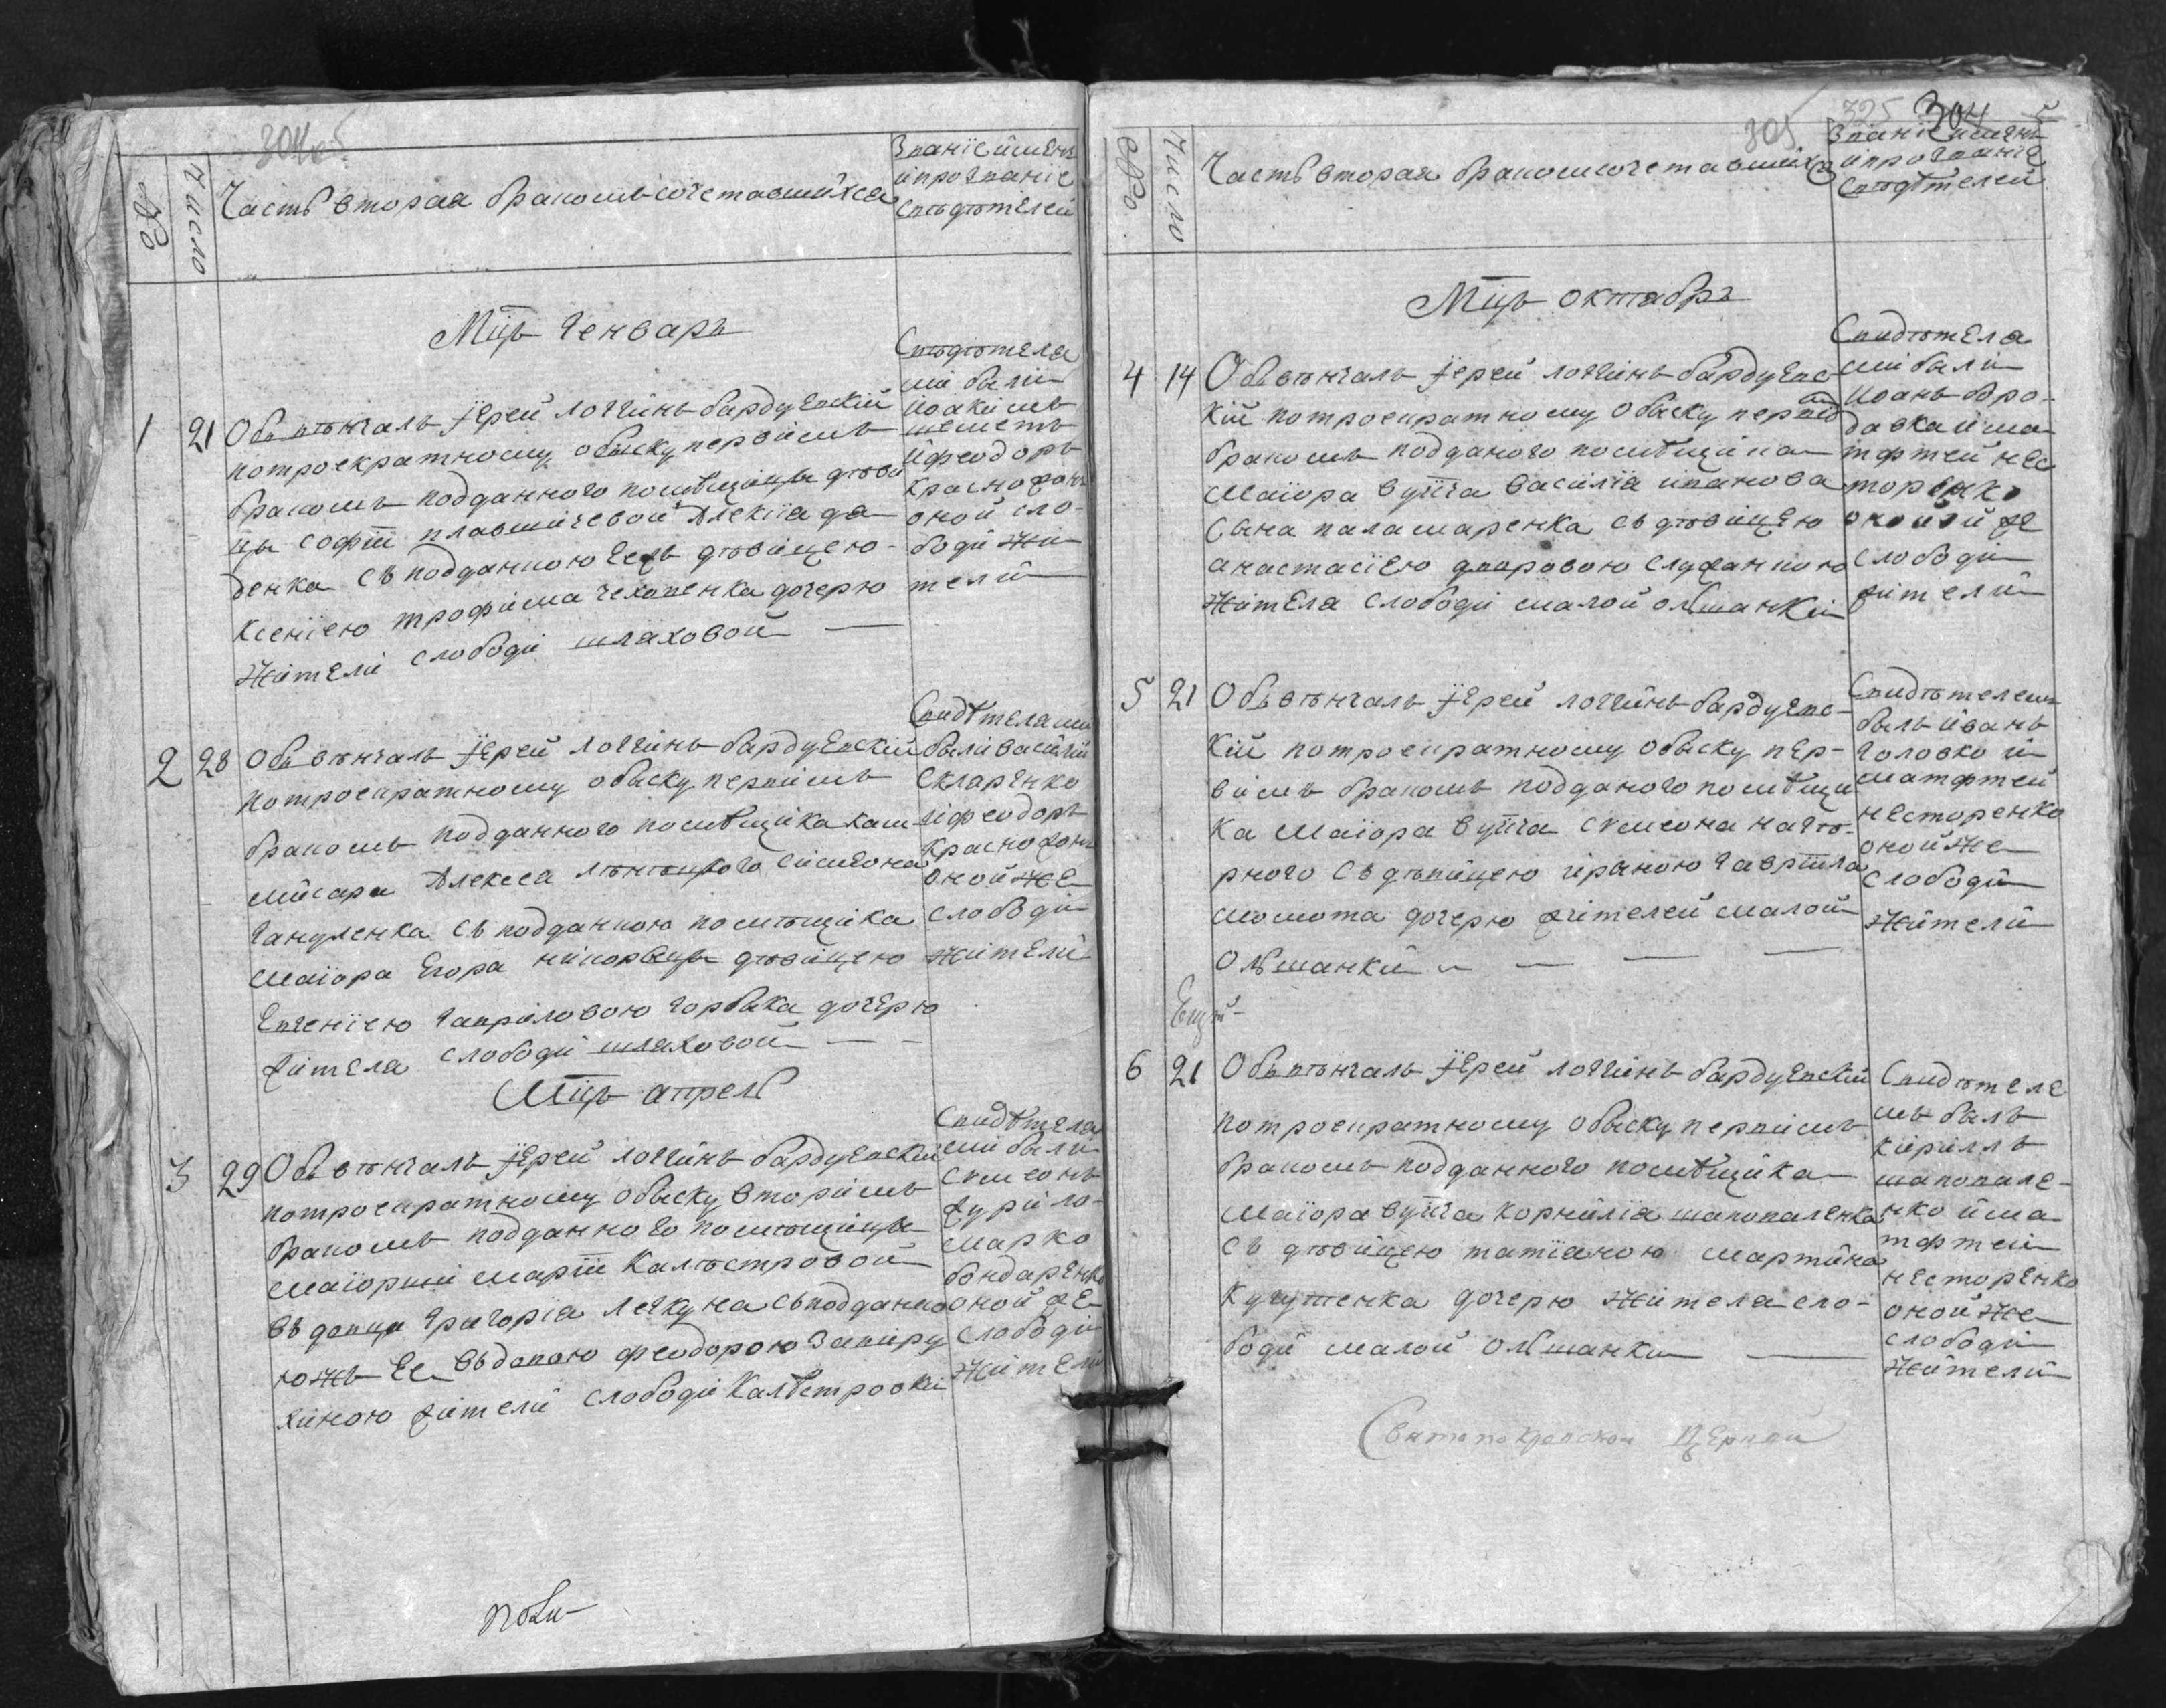 304 об
№
Число
Часть вторая бракомъ сочетавшихся
Званіе имена
и прозваніе
свѣдѣтелей
Мцъ Генварь
1 21 Обвѣнчалъ іерей логгинъ бардуевскій
потроекратному обыску первимъ
бракомъ подданного помѣщицы дѣви
цы софіи
денка съ подданною еежъ дѣвицею
ксеніею трофима дочерю
жители слободи шляховой
Свѣдѣтеля
ми были
иоакимъ
шеметъ
ифеодоръ
оной сло-
боди жи
тели
2 28 Обвѣнчалъ іерей логгинъ бардуевскій
потроекратному обыску первимъ
бракомъ подданного помѣщика кам
мисара Алексея сімеона
гануленка съ подданною помѣщика
маіора Егора дѣвицею
Евгеніею гавриловою горбика дочерю
жителя слободи шляховой
Свидѣтелями
были василій
скляренко
ифеодоръ
оной же
слободи
жители
Мцъ апрель
3 29 Обвѣнчалъ іерей логгинъ бардуевскій
потроекратному обыску вторимъ
бракомъ подданного помѣщицы
маіорши маріи Калѣстровой
вдовца григорія легкуна съподданно
южъ Ее вдовою феодорою
жители слободи Калѣстровки
Свидѣтеля
ми были
сѵмеонъ
марко
бондаренко
оной же
слободи
жители
305 325 304
№
Число
Часть вторая бракомсочетавшихся
Званіе имена
ипрозваніе
свѣдѣтелей
Мцъ октябрь
4 14 Обвѣнчалъ іерей логгинъ бардуевс
кій потроекратному обыску первимъ
бракомъподданого помѣщика
маіора вуича василія иванова
сына паламаренка съ дѣвицею
анастасіею
жителя слободи малой олшанки
Свидѣтеля
ми были
иоанъ
матфтей нес
торенко
оной же
слободи
жители
5 21 Обвѣнчалъ іерей логгинъ бардуевс-
кій потроекратному обыску пер-
вимъ бракомъ подданого помѣщи
ка маіора вуича сѵмеона
рного съ дѣвицею іриною гавріила
дочерю жителей малой
Олшанки
Свидѣтелемъ
былъ иванъ
головко и
матфтей
несторенко
оной же
слободи
жители
6 21 Обвѣнчалъ іерей логгинъ бардуевскій
потроекратному обыску первимъ
бракомъ подданного помѣщика
маіора вуича корнилія шаповаленка
съ дѣвицею татіаною мартина
дочерю жителя сло-
боди малой олшанки
Свидѣтеле
мъ былъ
кириллъ
шаповале-
нко има
тфтей
несторенко
оной же
слободи
жители